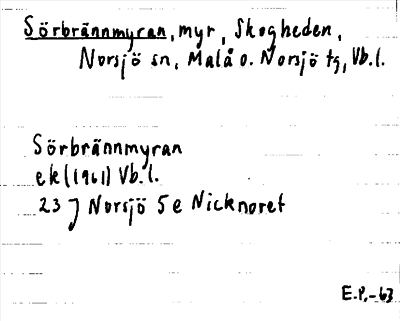 Sörbrännmyran, myr, Skogheden,
Norsjö sn, Malå o. Norsjö tg, Vb.l.
Sörbrännmyran
ek (1961) Vb.l.
23 J Norsjö 5 e Nicknoret
E.P.-63